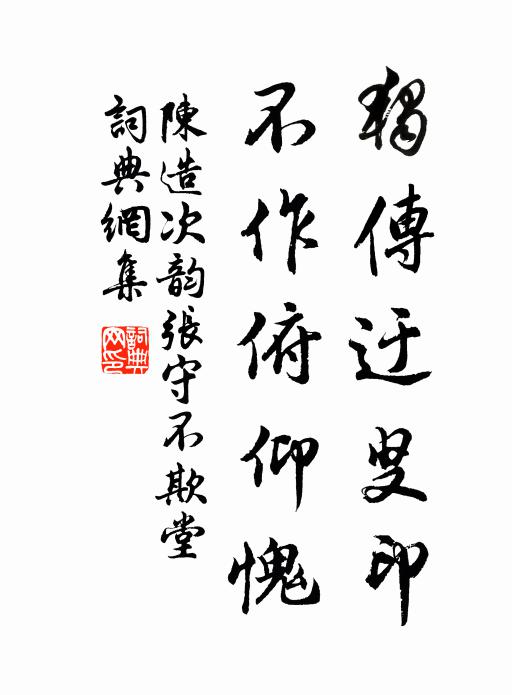 獨傳迂叟印
不作俯仰愧
陳造次韵張守不欺堂
詞典網集
詞典網印